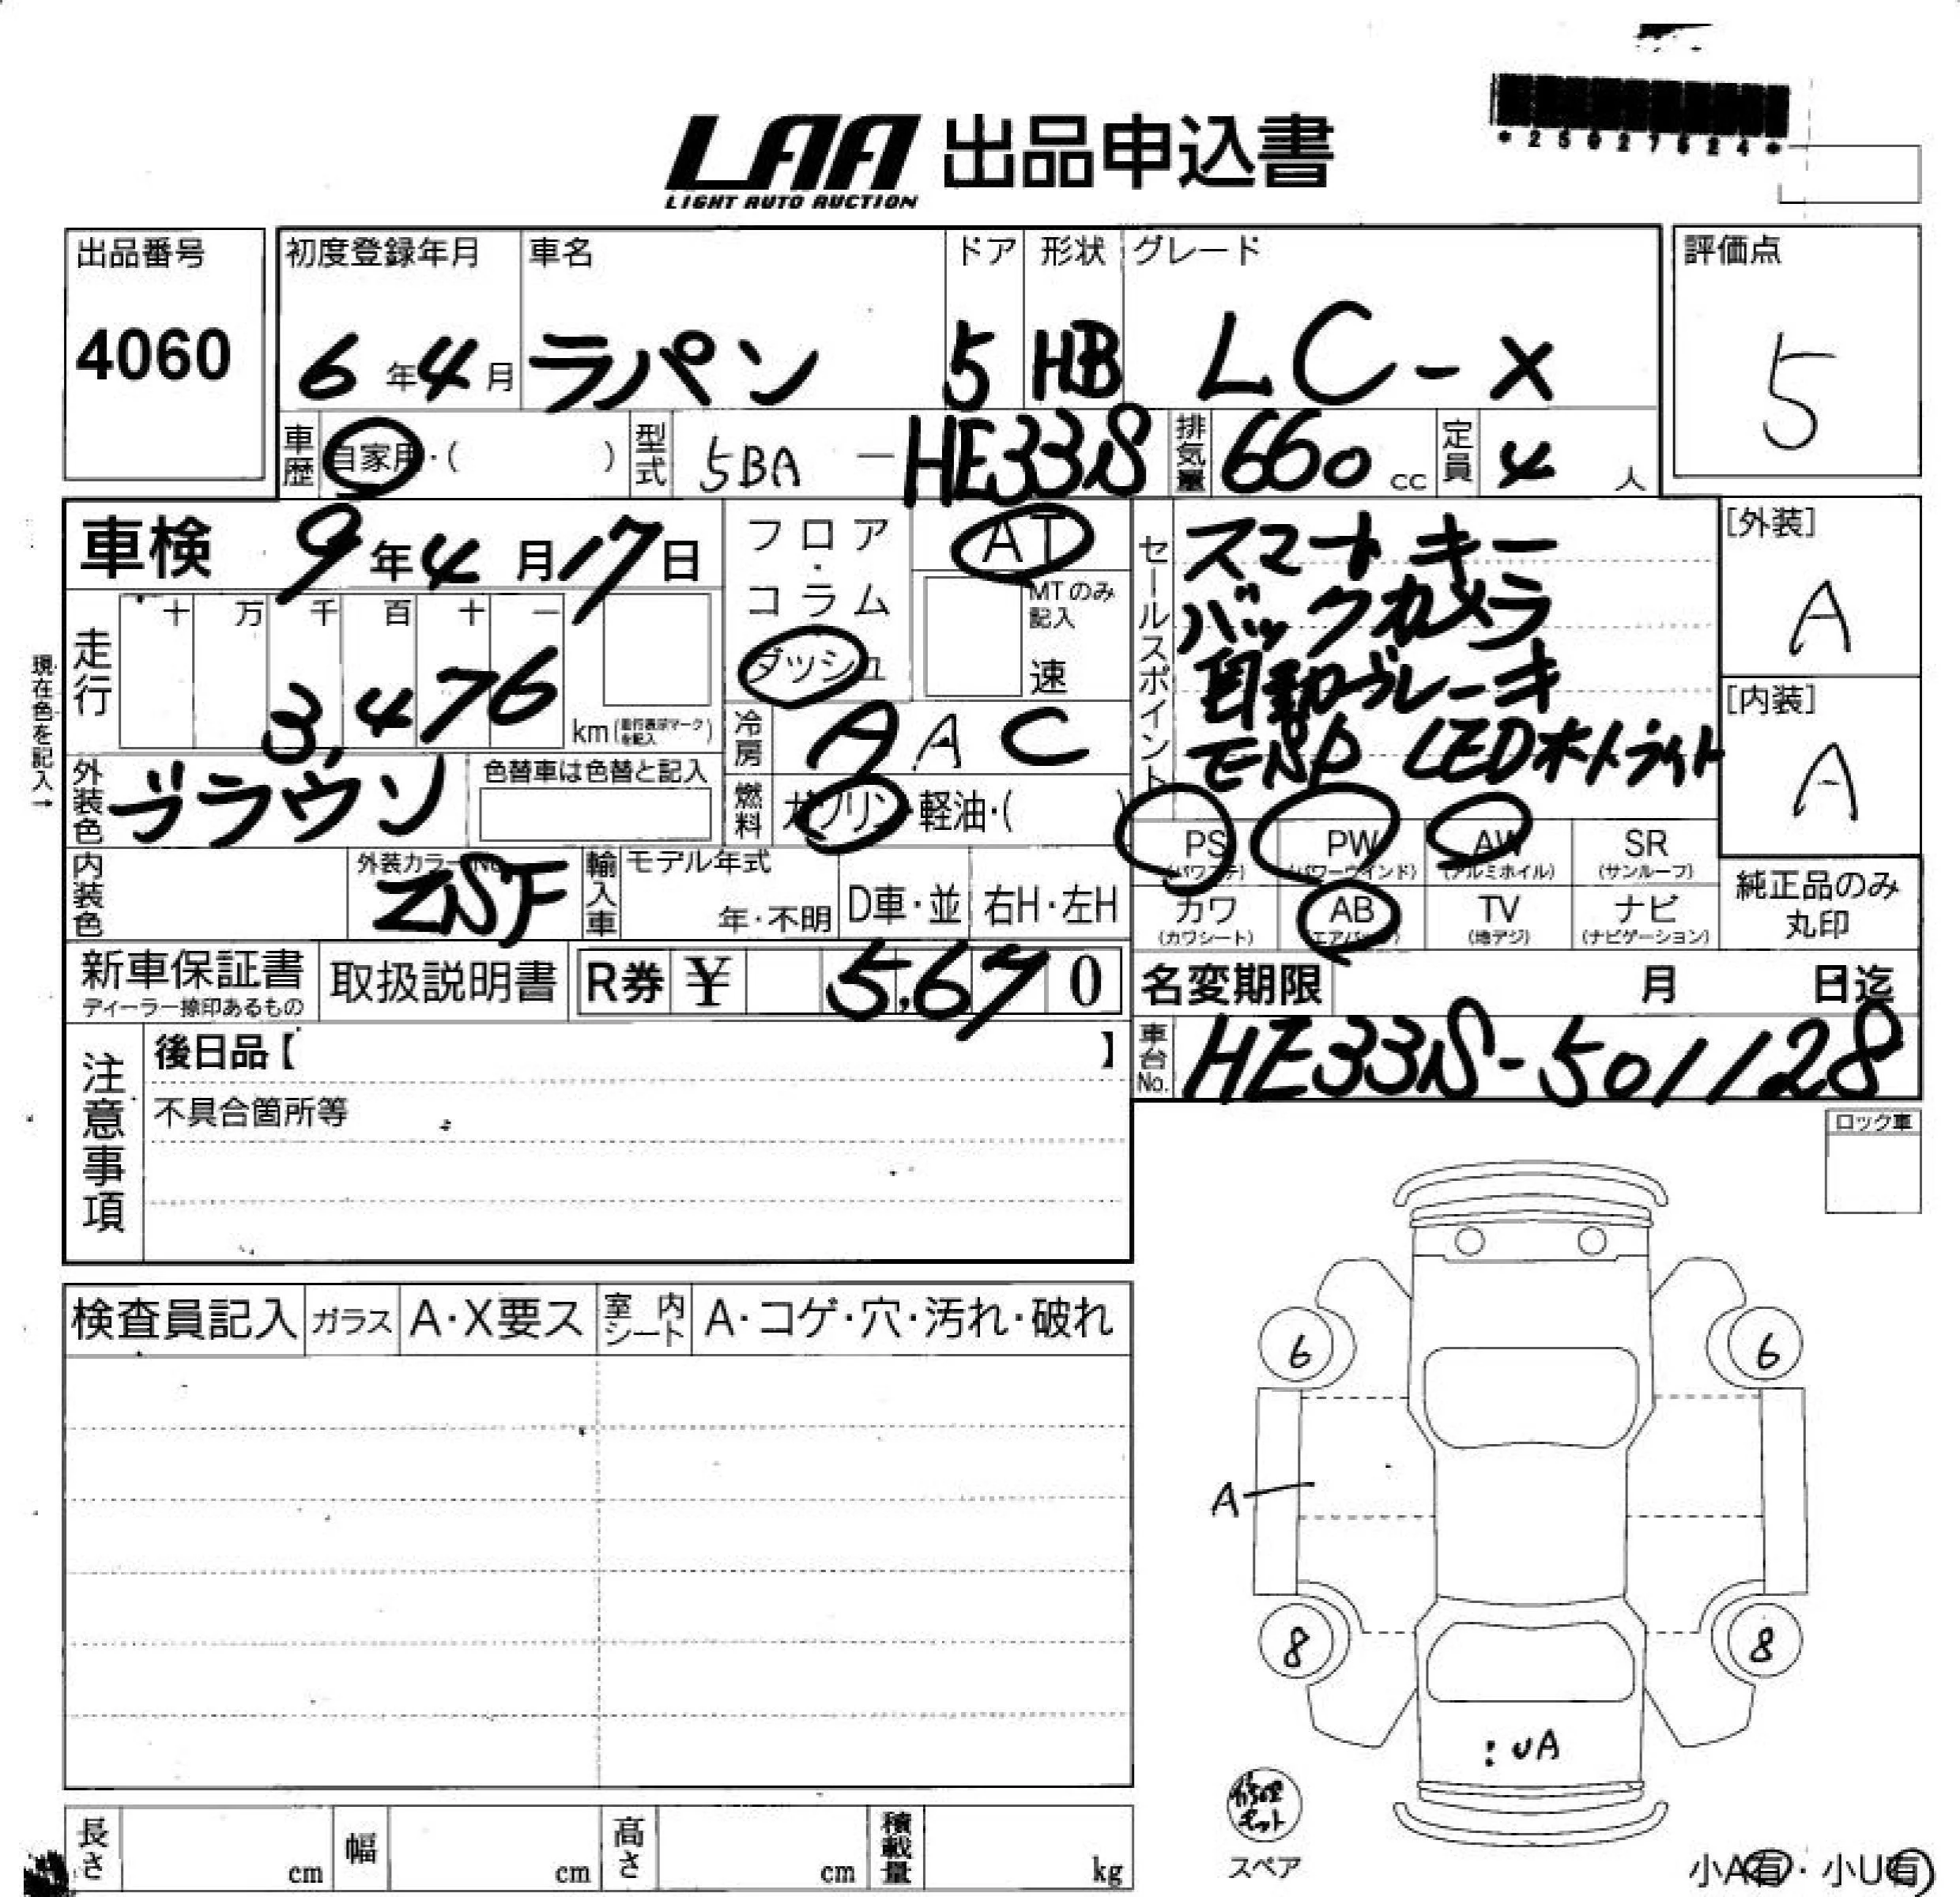 LAA 出品申込書
LIGHT AUTO AUCTION
*25027624*
出品番号 初度登録年月 車名 ドア 形状 グレード 評価点
4060 6年4月 ラパン 5 HB LC-X 5
車歴 自家用・( ) 型式 5BA-HE33S 排気量 660cc 定員 4人
車検 9年4月17日
フロア・コラム
ダッシュ
AT
MTのみ記入
速
セールスポイント
スマートキー
バックカメラ
自動ブレーキ
ESP LEDオートライト
[外装]
A
[内装]
A
現在色を記入→
走行 十 万 千 百 十 一
3,476 km (走行表示マークを記入)
冷房 AAC
外装色 ブラウン 色替車は色替と記入
燃料 ガソリン・軽油・( )
PS (パワステ) PW (パワーウインド) AW (アルミホイル) SR (サンルーフ)
カワ (カワシート) AB (エアバッグ) TV (地デジ) ナビ (ナビゲーション)
純正品のみ丸印
内装色 外装カラーNo. ZSF 輸入車 モデル年式 年・不明 D車・並 右H・左H
新車保証書 ディーラー捺印あるもの 取扱説明書 R券 ¥ 5,670
名変期限 月 日迄
車台No. HE33S-501128
注意事項
後日品【 】
不具合箇所等
ロック車
検査員記入 ガラス A・X要ス 室内シート A・コゲ・穴・汚れ・破れ
6 6
A
8 8
:UA
キット
スペア
長さ cm 幅 cm 高さ cm 積載量 kg
小A有・小U有